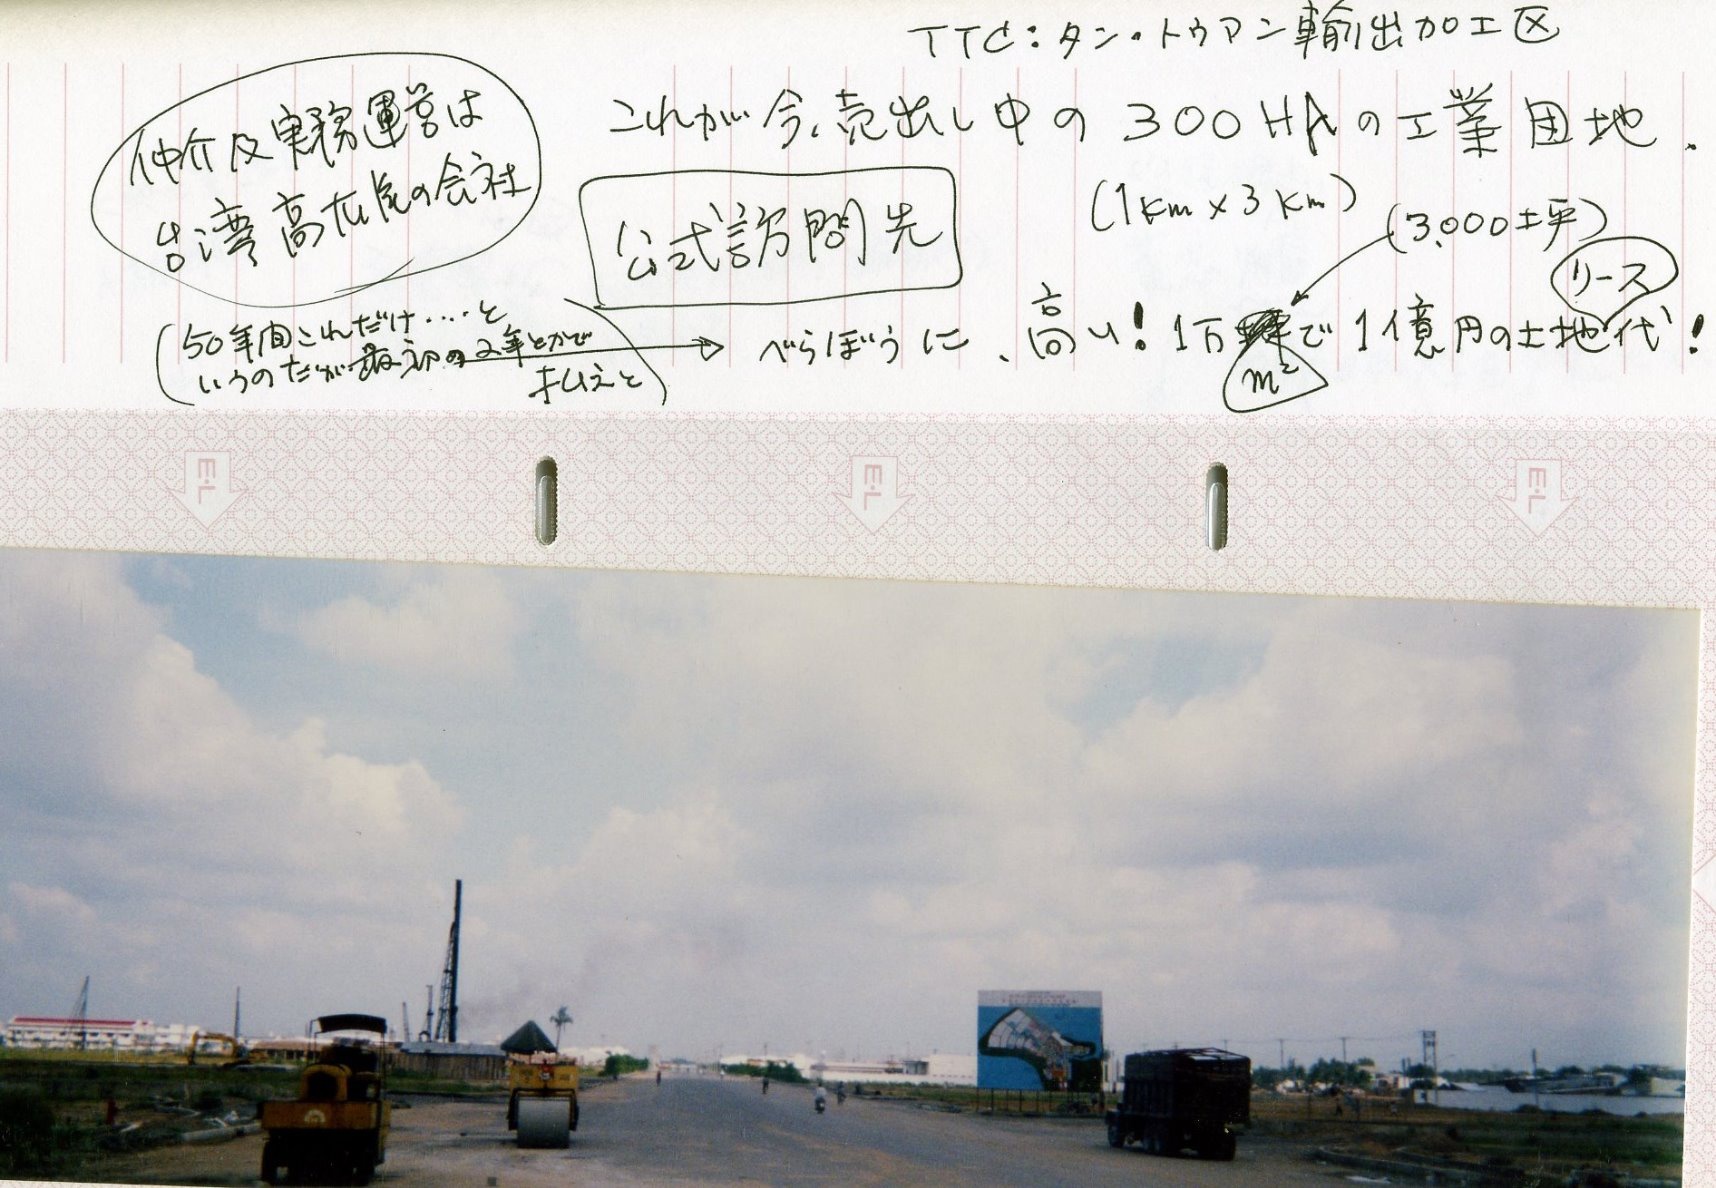 TTC:タン・トゥアン輸出加工区
仲介及実務運営は
台湾高雄の会社
これが今、売出し中の300HAの工業団地.
公式訪問先
(1Km×3Km)
(3,000土坪)
リース
(50年間これだけ‥‥と
いうのだが最初の2年とかで
払えと)
べらぼうに、高い!1万m²で1億円の土地代!
E・L
E・L
E・L